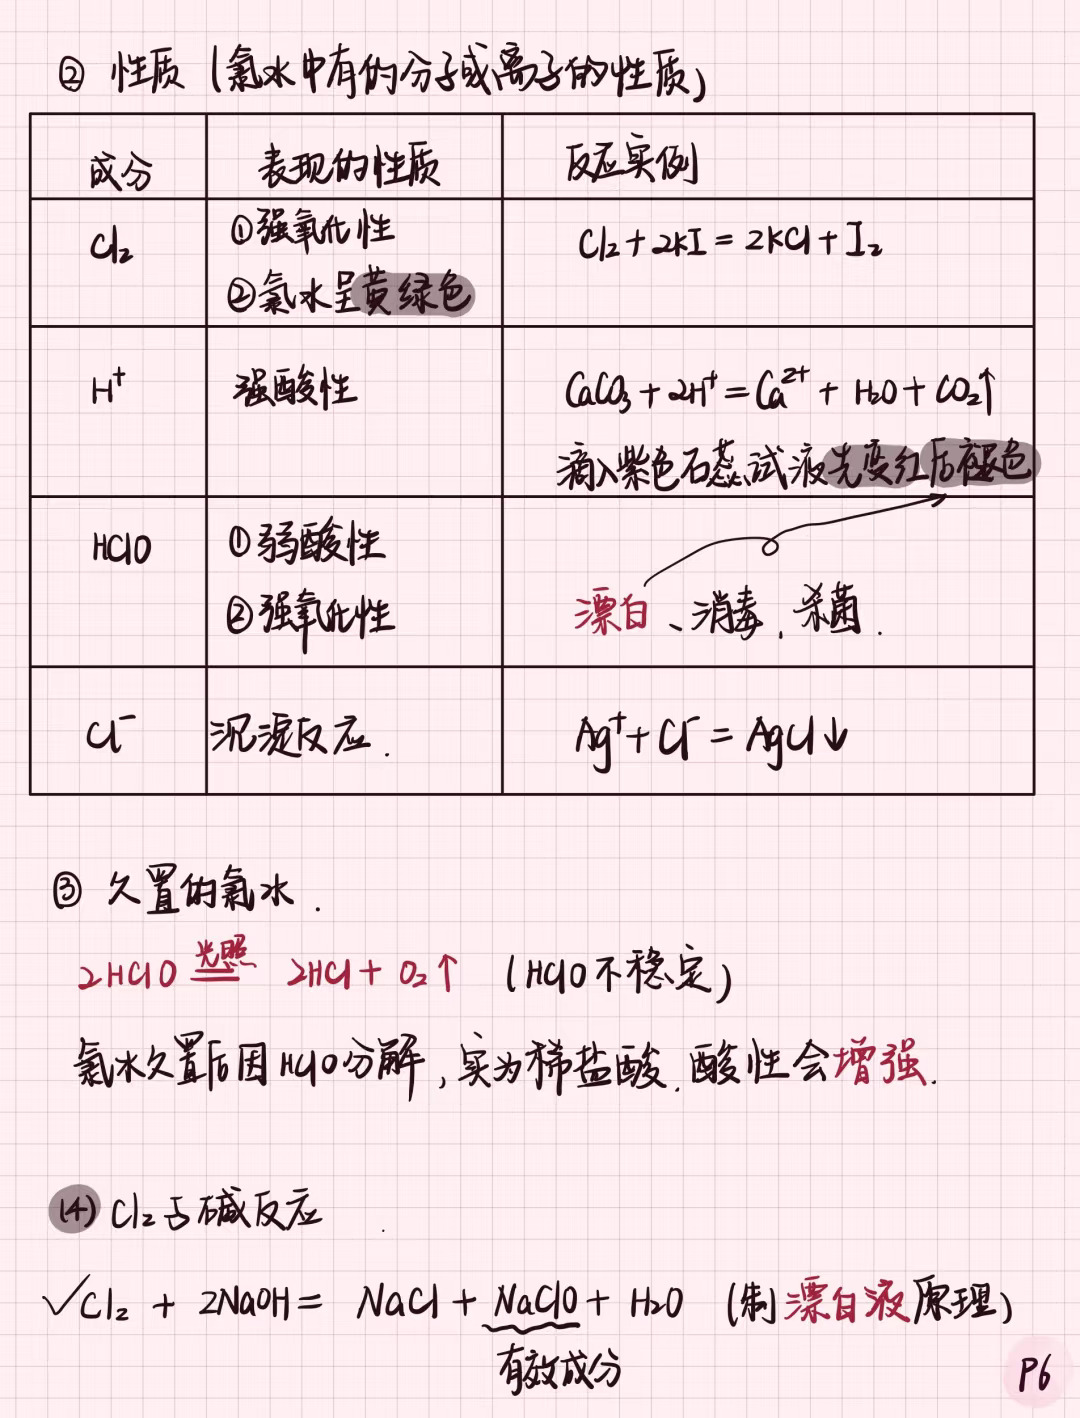 ② 性质 (氯水中有的分子或离子的性质)
成分 表现的性质 反应实例
Cl₂ ①强氧化性 Cl₂ + 2KI = 2KCl + I₂
②氯水呈黄绿色
H⁺ 强酸性 CaCO₃ + 2H⁺ = Ca²⁺ + H₂O + CO₂↑
滴入紫色石蕊试液先变红后褪色
HClO ①弱酸性
②强氧化性 漂白、消毒、杀菌.
Cl⁻ 沉淀反应. Ag⁺ + Cl⁻ = AgCl↓
③ 久置的氯水.
2HClO 光照 2HCl + O₂↑ (HClO不稳定)
氯水久置后因HClO分解,实为稀盐酸.酸性会增强.
(4) Cl₂与碱反应
√Cl₂ + 2NaOH = NaCl + NaClO + H₂O (制漂白液原理)
有效成分
P6